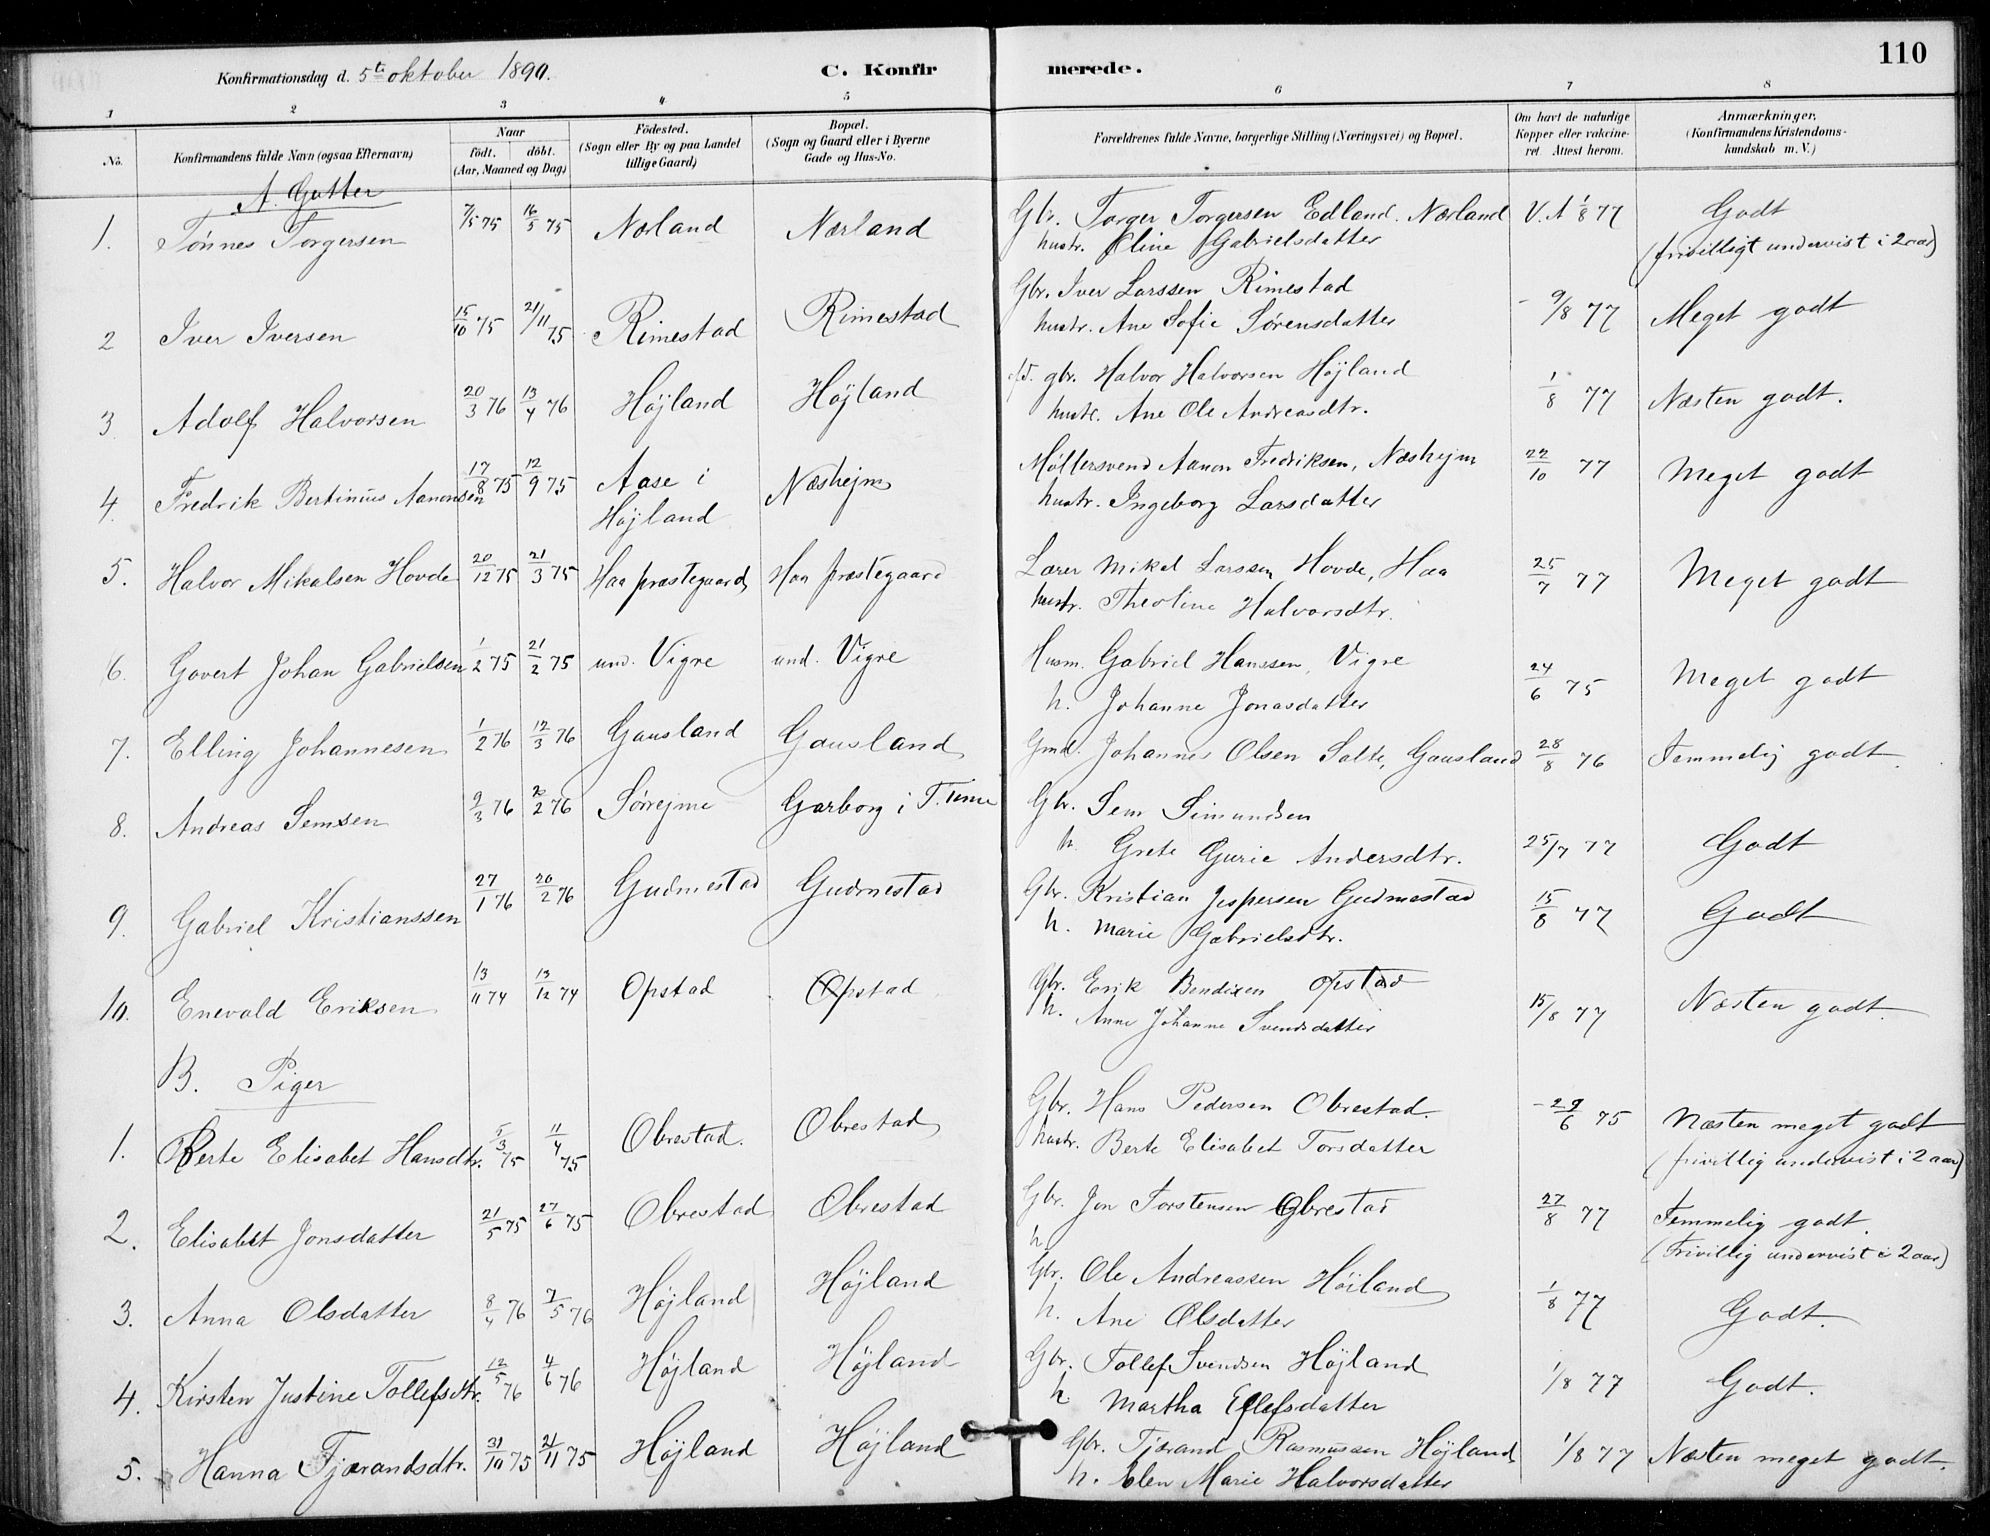 110
Konfirmationsdag d. 5te oktober 1890. C. Konfirmerede.
1 2 3 4 5 6 7 8
No. Konfirmandens fulde Navn (ogsaa Efternavn) Naar født. døbt. (Aar, Maaned og Dag) Födested. (Sogn eller By og paa Landet tillige Gaard) Bopæl. (Sogn og Gaard eller i Byerne Gade og Hus-No. Forældrenes fulde Navne, borgerlige Stilling (Næringsvei) og Bopæl. Om havt de naturlige Kopper eller vakcineret. Attest herom. Anmærkninger, (Konfirmandens Kristendomskundskab m. V.)
A. Gutter
1. Tönnes Torgersen 7/5 75 16/5 75 Nærland Nærland Gbr. Torger Torgersen Edland. Nærland V. A 1/8 77 Godt
hustr. Eline Gabrielsdatter (frivilligt undervist i 2 aar)
2 Iver Iversen 15/10 75 21/11 75 Rimestad Rimestad Gbr. Iver Larssen Rimestad - 9/8 77 Meget godt
hustr. Ane Sofie Sørensdatter
3. Adolf Halvorsen 20/3 76 13/4 76 Højland Højland gbr. Halvor Halvorsen Højland 1/8 77 Næsten godt.
hustr. Ane Ole Andreasdtr.
4. Fredrik Bertinius Aanonsen 17/8 75 12/9 75 Aase i Højland Næshejm Møllersvend Aanon Fredriksen, Næshejm 22/10 77 Meget godt
hustr. Ingeborg Larsdatter
5. Halvor Mikalsen Hovde 20/12 75 21/3 75 Haa præstegaard Haa præstegaard Lærer Mikal Larssen Hovde, Haa 25/7 77 Meget godt
hustr. Theoline Halvorsdtr.
6. Govert Johan Gabrielsen 1/2 75 21/2 75 und. Vigre und. Vigre Husm. Gabriel Hanssen, Vigre 24/6 75 Meget godt
h. Johanne Jonasdatter
7. Elling Johannesen 1/2 76 12/3 76 Gausland Gausland Gmd. Johannes Olsen Salte, Gausland 28/8 76 Temmelig godt.
8. Andreas Semsen 9/3 76 20/2 76 Sörrejme Garborg i T. Time Gbr. Sem Simundsen
h. Grete Gurie Andersdtr. 25/7 77 Godt
9. Gabriel Kristianssen 27/1 76 20/2 76 Gudmestad Gudmestad Gbr. Kristian Jespersen Gudmestad 15/8 77 Godt
h. Marie Gabrielsdtr.
10. Enevald Eriksen 13/11 74 13/12 74 Opstad Opstad Gbr. Erik Bendixen Opstad 15/8 77 Næsten godt.
h. Anne Johanne Svendsdatter
B. Piger
1. Berte Elisabet Hansdtr. 5/3 75 11/4 75 Obrestad. Obrestad Gbr. Hans Pedersen Obrestad. - 29/6 75 Næsten meget godt
hustr. Berte Elisabet Torsdatter (frivillig undervist i 2 aar)
2. Elisabet Jonsdatter 21/5 75 27/6 75 Obrestad Obrestad Gbr. Jon Torstensen Obrestad 27/8 77 Temmelig godt.
h. (Frivillig undervist i 2 aar)
3. Anna Olsdatter 8/4 76 7/5 76 Højland Højland Gbr. Ole Andreassen Höiland 1/8 77 Godt.
h. Ane Olsdatter
4. Kirsten Justine Tollefsdtr. 12/5 76 4/6 76 Højland Højland Gbr. Tollef Svendsen Højland 1/8 77 Godt.
h. Martha Ellefsdatter
5. Hanna Tjærandsdtr. 31/10 75 21/11 75 Højland Højland Gbr. Tjærand Rasmussen Højland 1/8 77 Næsten meget godt.
h. Elen Marie Halvorsdatter